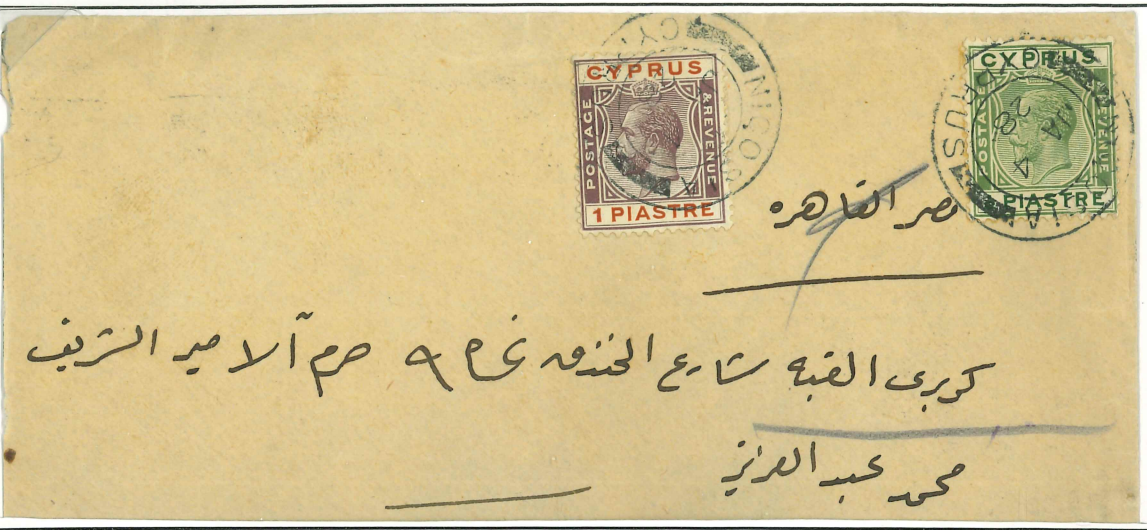 CYPRUS
POSTAGE
& REVENUE
1 PIASTRE
CYPRUS
POSTAGE
REVENUE
PIASTRE
CYPRUS
4
JA
28
مصر القاهره
كوبرى القبه شارع الخندق نمره ٩ حرم آلامير الشريف
محمد عبد العزيز